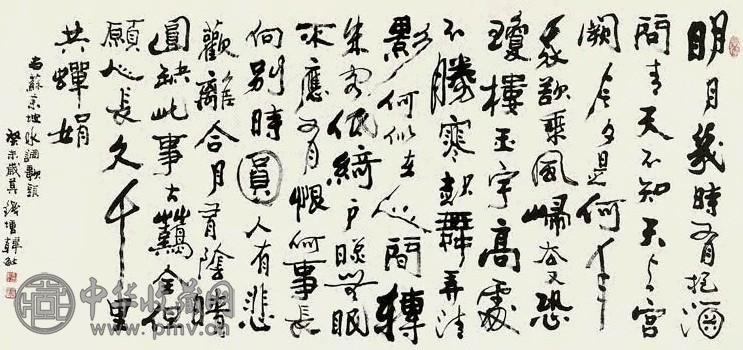 明月幾時有把酒
問青天不知天上宮
闕今夕是何年
我欲乘風歸去又恐
瓊樓玉宇高處
不勝寒起舞弄清
影何似在人間轉
朱閣低綺戶照無眠
不應有恨何事長
向別時圓人有悲
歡離合月有陰晴
圓缺此事古難全但
願人長久千里
共嬋娟
蘇東坡水調歌頭
癸未歲
中华收藏网